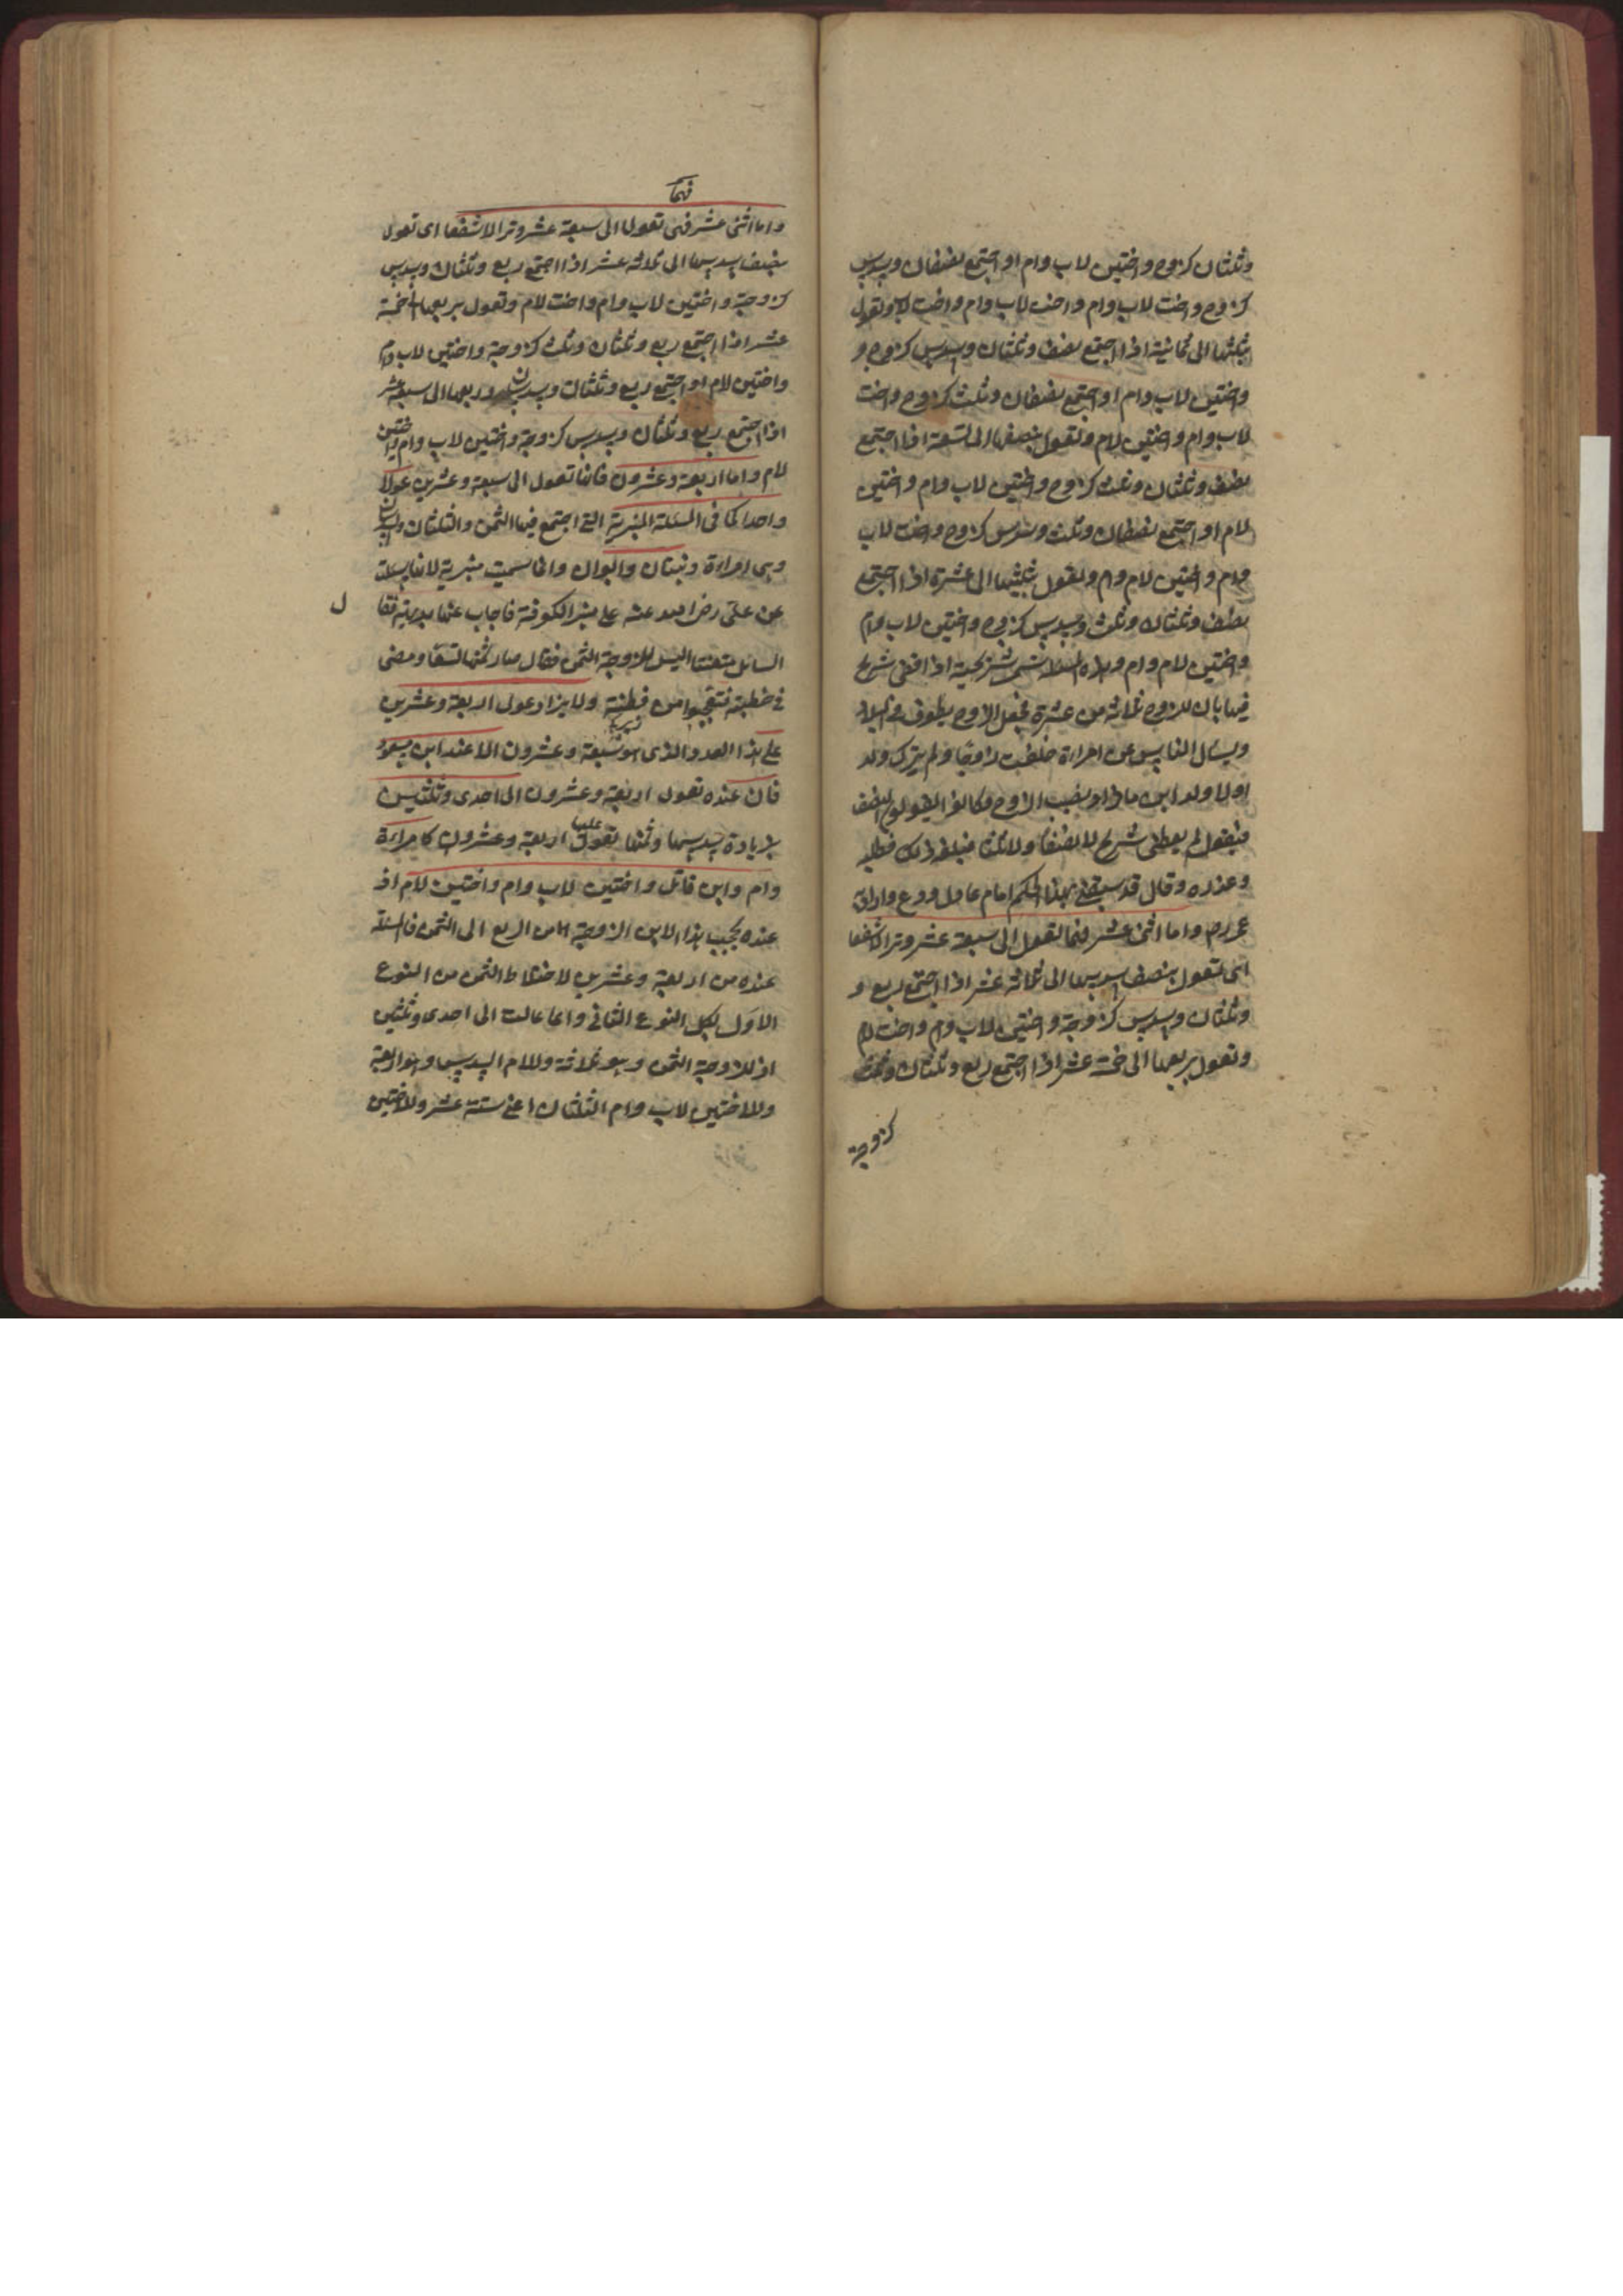 وثلثان كزوج واختين لاب وام او اجتمع نصفان وسدس
كزوج واخت لاب وام واخت لاب وام واخت لاب وتعول
بثلثها الى ثمانية اذا اجتمع نصف وثلثان وسدس كزوج و
واختين لاب وام او اجتمع نصفان وثلث كزوج واخت
لاب وام واختين لام وتعول بنصفها الى تسعة اذا اجتمع
نصف وثلثان وثلث كزوج واختين لاب وام واختين
لام او اجتمع نصفان وثلث وسدس كزوج واخت لاب
وام واختين لام وام وتعول بثلثيها الى عشرة اذا اجتمع
نصف وثلثان وثلث وسدس كزوج واختين لاب وام
واختين لام وام وهذه المسئلة تسمى شريحية اذا قضى شريح
فيها بان للزوج ثلاثة من عشرة فجعل الزوج يطوف في البلاد
ويسأل الناس عن امراءة خلفت زوجا ولم يترك ولد
اولا ولد ابن ماذا نصيب الزوج فكانوا يقولون النصف
فيقول لم يعطنى شريح لا نصفا ولا ثلثا فبلغه ذلك فطلبه
وعذره وقال قد سبقنى بهذا الحكم امام عادل ورع واراد
عمر رض واما اثنى عشر فانها تعول الى سبعة عشر وترا لا شفعا
اى تعول بنصف سدسها الى ثلاثة عشر اذا اجتمع ربع و
وثلثان وسدس كزوجة واختين لاب وام واخت لام
وتعول بربعها الى خمسة عشر اذا اجتمع ربع وثلثان وثلث
كزوجة
فهما
واما اثنى عشر فهى تعول الى سبعة عشر وترا لا شفعا اى تعول
بنصف سدسها الى ثلاثة عشر اذا اجتمع ربع وثلثان وسدس
كزوجة واختين لاب وام واخت لام وتعول بربعها الى خمسة
عشر اذا اجتمع ربع وثلثان وثلث كزوجة واختين لاب وام
واختين لام او اجتمع ربع وثلثان وسدسان وربعها الى سبعة عشر
اذا اجتمع ربع وثلثان وسدس كزوجة واختين لاب وام واختين
لام واما اربعة وعشرون فانها تعول الى سبعة وعشرين عولا
واحدا كما فى المسئلة المنبرية التى اجتمع فيها الثمن والثلثان وسدسان
وهى امراءة وبنتان وابوان وانما سميت منبرية لانها سئلت
عن على رض الله عنه على منبر الكوفة فاجاب عنها بديهة فقا
ل
السائل متعنتا اليس للزوجة الثمن فقال صار ثمنها تسعا ومضى
فى خطبته فتعجبوا من فطنته ولا يزاد عول اربعة وعشرين
على هذا العدد الذى هو سبعة وعشرون الا عند ابن مسعود
فان عنده تعول اربعة وعشرون الى احدى وثلثين
بزيادة سدسها وثمنها تعول عليها اربعة وعشرون كامراءة
وام وابن قاتل واختين لاب وام واختين لام اذ
عنده يحجب هذا الابن الزوجة من الربع الى الثمن فالمسئلة
عنده من اربعة وعشرين لاختلاط الثمن من النوع
الاول بكل النوع الثانى وانما عالت الى احدى وثلثين
اذ للزوجة الثمن وهو ثلاثة وللام السدس وهو اربعة
وللاختين لاب وام الثلثان اعنى ستة عشر وللاختين